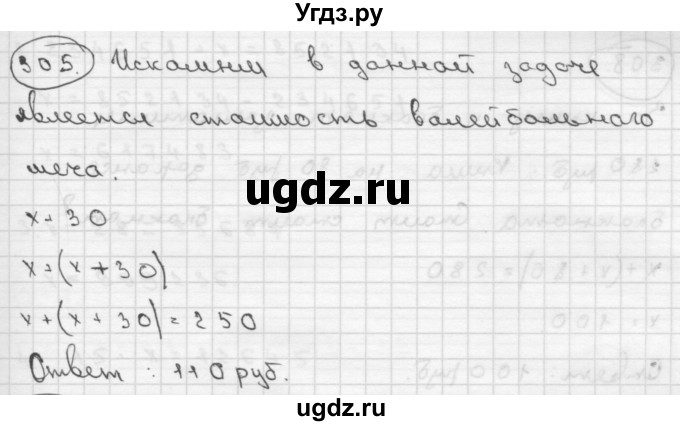 Угдз.ру
305. Искомым в данной задаче
является стоимость валейбольного
мяча.
ugdz.ru
x + 30
x + (x + 30)
x + (x + 30) = 250
Ответ : 110 руб.
ugdz.ru